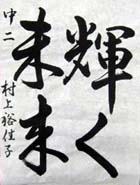 輝く
未来
中二 村上裕佳子